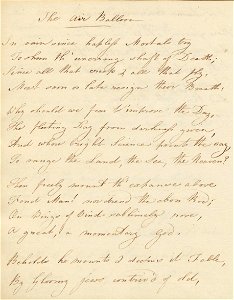 The Air Balloon
In vain since hapless Mortals try
To shun the unerring shaft of Death;
Since all that creep & all that fly,
Must soon or late resign their Breath;
Why should we fear t'improve the Day,
The fleeting Day from darkness given,
And where bright Science points the way,
To range the Land, the Sea, the Heaven?
Then freely mount th'expanse above
Great Man! and the
On Wings of Winds sublimely rove,
A great, a momentary God.
Behold he mounts & in Fable,
By of old,